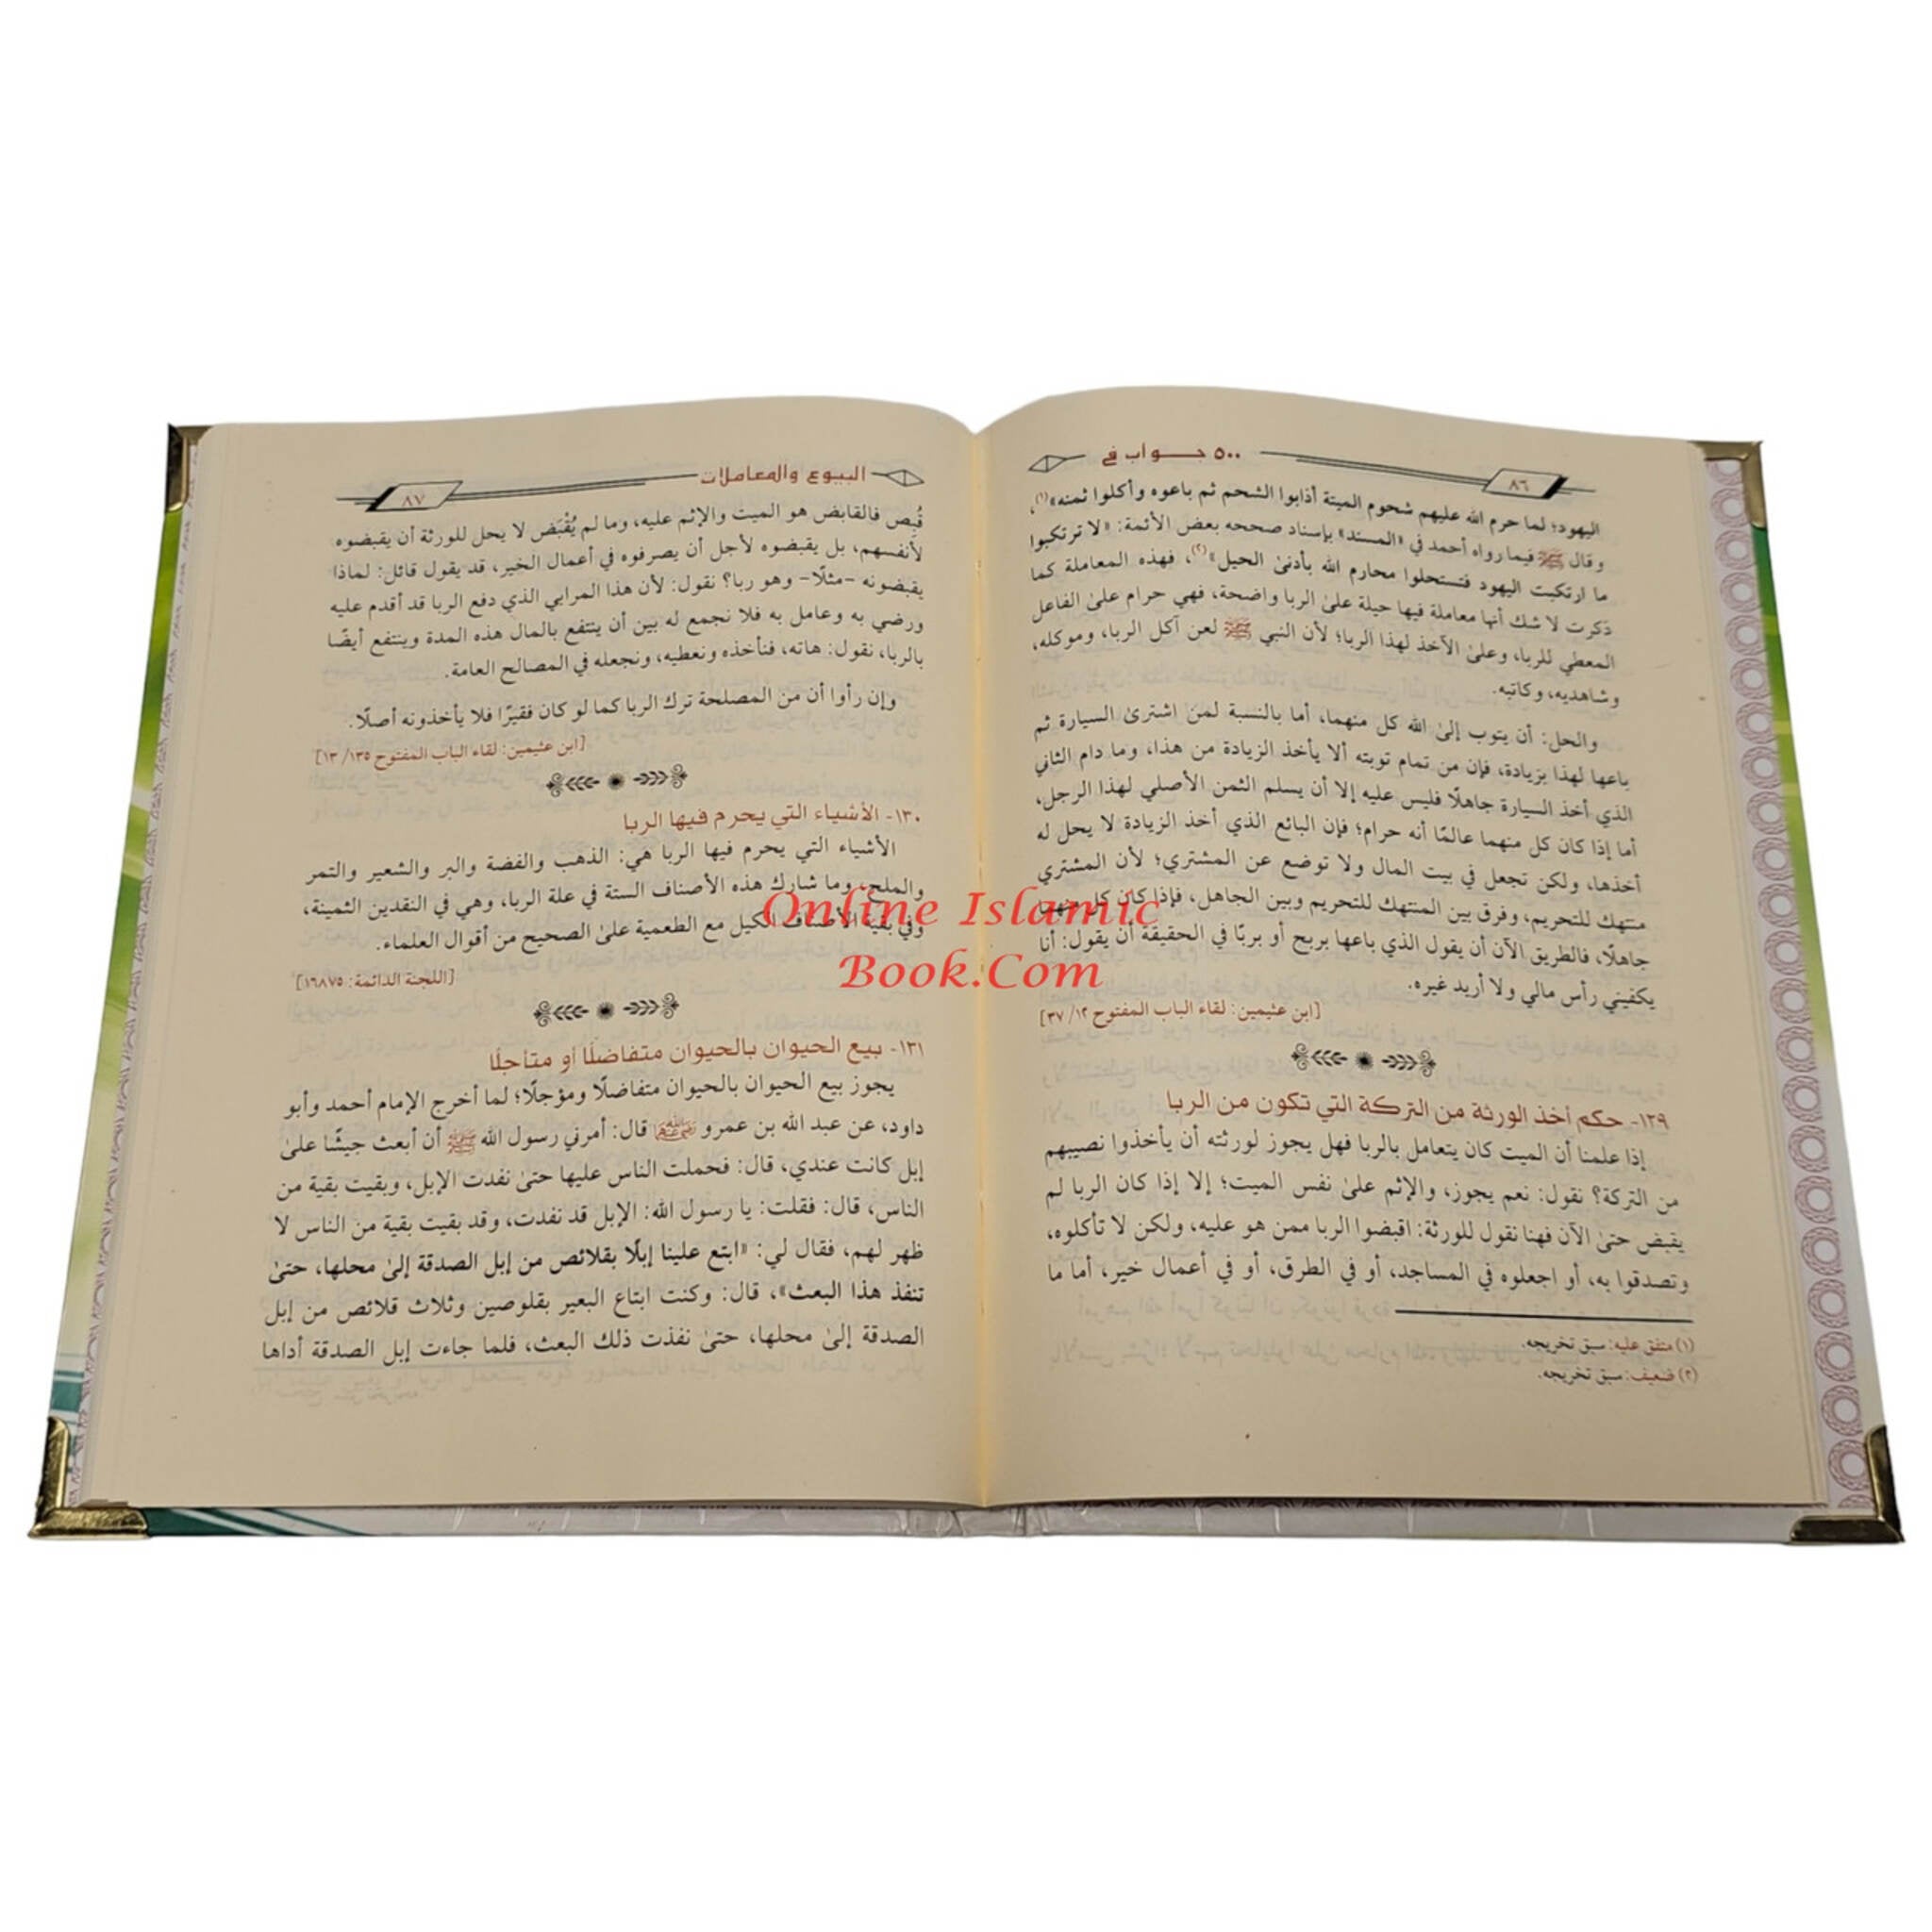 ٨٦
٥٠٠ جـــواب في
اليهود؛ لما حرم الله عليهم شحوم الميتة أذابوا الشحم ثم باعوه وأكلوا ثمنه»(١)،
وقال ﷺ فيما رواه أحمد في «المسند» بإسناد صححه بعض الأئمة: «لا ترتكبوا
ما ارتكبت اليهود فتستحلوا محارم الله بأدنىٰ الحيل»(٢)، فهذه المعاملة كما
ذكرت لا شك أنها معاملة فيها حيلة علىٰ الربا واضحة، فهي حرام علىٰ الفاعل
المعطي للربا، وعلىٰ الآخذ لهذا الربا؛ لأن النبي ﷺ لعن آكل الربا، وموكله،
وشاهديه، وكاتبه.
والحل: أن يتوب إلىٰ الله كل منهما، أما بالنسبة لمن اشترىٰ السيارة ثم
باعها لهذا بزيادة، فإن من تمام توبته ألا يأخذ الزيادة من هذا، وما دام الثاني
الذي أخذ السيارة جاهلًا فليس عليه إلا أن يسلم الثمن الأصلي لهذا الرجل،
أما إذا كان كل منهما عالمًا أنه حرام؛ فإن البائع الذي أخذ الزيادة لا يحل له
أخذها، ولكن تجعل في بيت المال ولا توضع عن المشتري؛ لأن المشتري
منتهك للتحريم، وفرق بين المنتهك للتحريم وبين الجاهل، فإذا كان كل منهما
جاهلًا، فالطريق الآن أن يقول الذي باعها بربح أو بربًا في الحقيقة أن يقول: أنا
يكفيني رأس مالي ولا أريد غيره.
[ابن عثيمين: لقاء الباب المفتوح ١٢/ ٣٧]
١٢٩- حكم أخذ الورثة من التركة التي تكون من الربا
إذا علمنا أن الميت كان يتعامل بالربا فهل يجوز لورثته أن يأخذوا نصيبهم
من التركة؟ نقول: نعم يجوز، والإثم علىٰ نفس الميت؛ إلا إذا كان الربا لم
يقبض حتىٰ الآن فهنا نقول للورثة: اقبضوا الربا ممن هو عليه، ولكن لا تأكلوه،
وتصدقوا به، أو اجعلوه في المساجد، أو في الطرق، أو في أعمال خير، أما ما
(١) متفق عليه: سبق تخريجه.
(٢) ضعيف: سبق تخريجه.
البيوع والمعاملات
٨٧
قُبِض فالقابض هو الميت والإثم عليه، وما لم يُقْبَض لا يحل للورثة أن يقبضوه
لأنفسهم، بل يقبضوه لأجل أن يصرفوه في أعمال الخير، قد يقول قائل: لماذا
يقبضونه -مثلًا- وهو ربا؟ نقول: لأن هذا المرابي الذي دفع الربا قد أقدم عليه
ورضي به وعامل به فلا نجمع له بين أن ينتفع بالمال هذه المدة وينتفع أيضًا
بالربا، نقول: هاته، فنأخذه ونعطيه، ونجعله في المصالح العامة.
وإن رأوا أن من المصلحة ترك الربا كما لو كان فقيرًا فلا يأخذونه أصلًا.
[ابن عثيمين: لقاء الباب المفتوح ١٣٥/ ١٣]
١٣٠- الأشياء التي يحرم فيها الربا
الأشياء التي يحرم فيها الربا هي: الذهب والفضة والبر والشعير والتمر
والملح، وما شارك هذه الأصناف الستة في علة الربا، وهي في النقدين الثمينة،
وفي بقية الأصناف الكيل مع الطعمية علىٰ الصحيح من أقوال العلماء.
[اللجنة الدائمة: ١٦٨٧٥]
١٣١- بيع الحيوان بالحيوان متفاضلًا أو متأجلًا
يجوز بيع الحيوان بالحيوان متفاضلًا ومؤجلًا؛ لما أخرج الإمام أحمد وأبو
داود، عن عبد الله بن عمرو رضي الله عنهما قال: أمرني رسول الله ﷺ أن أبعث جيشًا علىٰ
إبل كانت عندي، قال: فحملت الناس عليها حتىٰ نفدت الإبل، وبقيت بقية من
الناس، قال: فقلت: يا رسول الله: الإبل قد نفدت، وقد بقيت بقية من الناس لا
ظهر لهم، فقال لي: «ابتع علينا إبلًا بقلائص من إبل الصدقة إلىٰ محلها، حتىٰ
تنفذ هذا البعث»، قال: وكنت ابتاع البعير بقلوصين وثلاث قلائص من إبل
الصدقة إلىٰ محلها، حتىٰ نفذت ذلك البعث، فلما جاءت إبل الصدقة أداها
Online Islamic
Book.Com